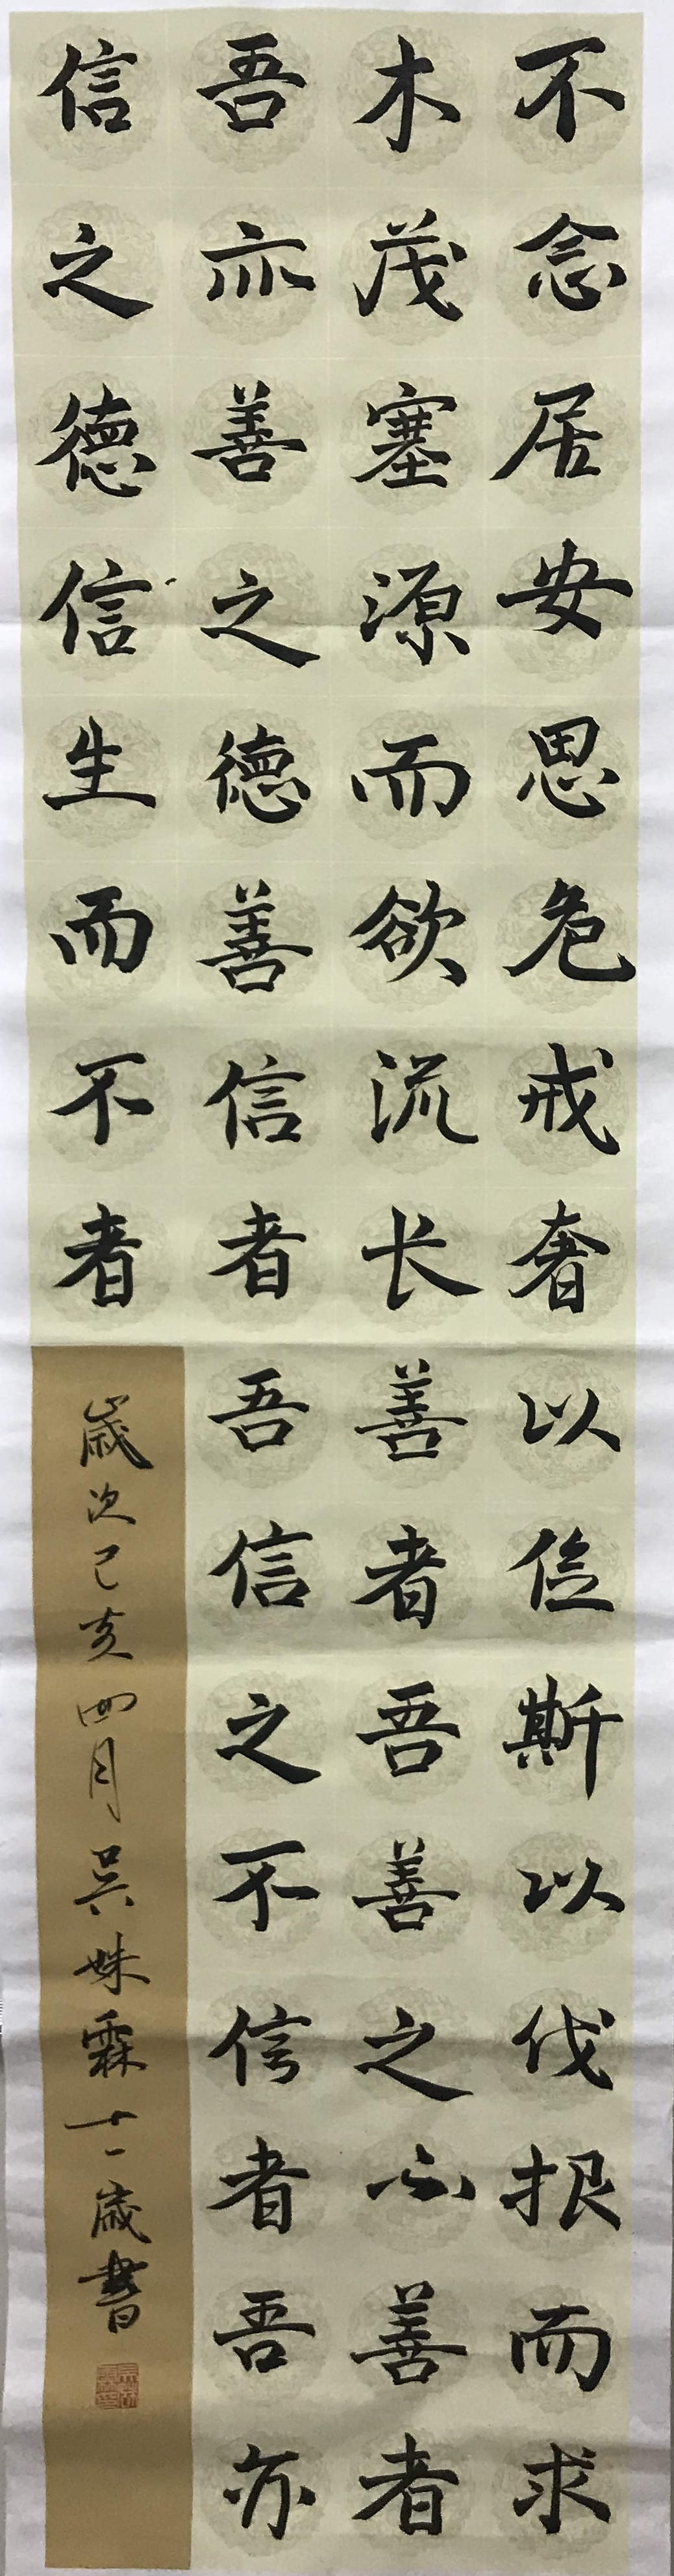 不念居安思危戒奢以俭斯以伐根而求
木茂塞源而欲流长善者吾善之不善者
吾亦善之德善信者吾信之不信者吾亦
信之德信生而不者
歲次己亥四月吴姝霖十一歲書